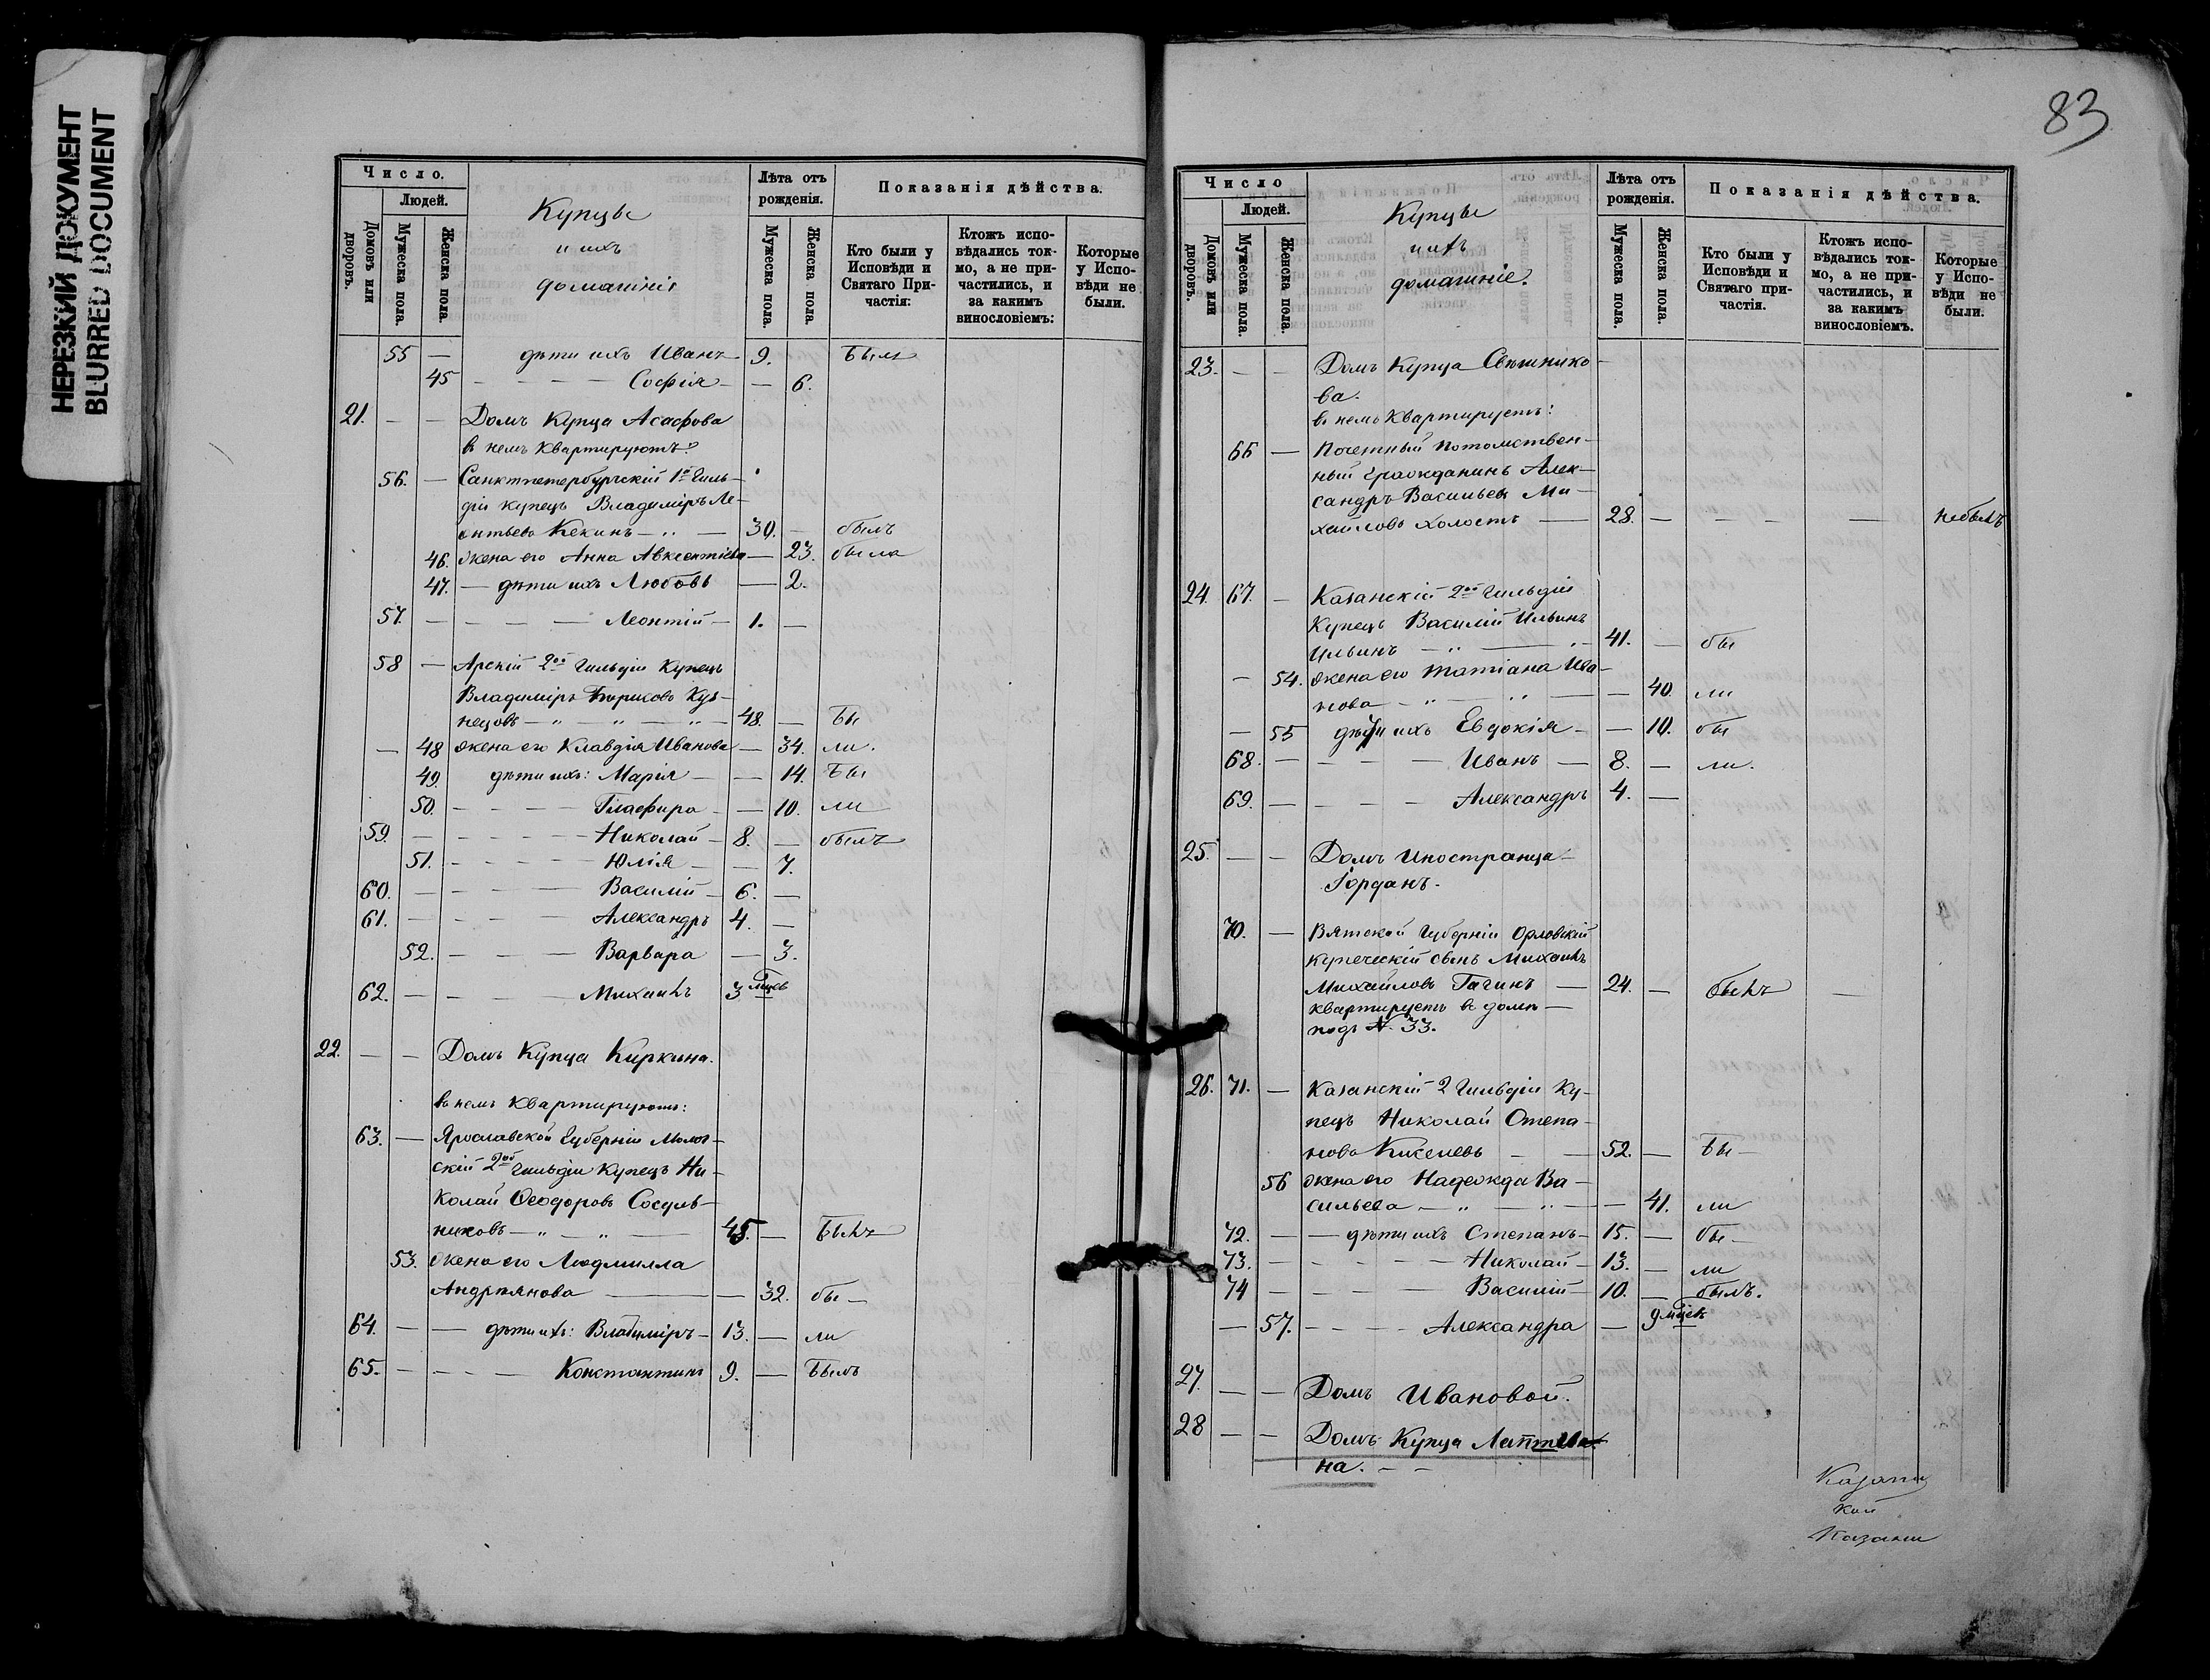 НЕРЕЗКИЙ ДОКУМЕНТ
BLURRED DOCUMENT
Число.
Людей.
Домовъ или дворовъ.
Мужеска пола.
Женска пола.
Купцы
и ихъ
домашніе
Лѣта отъ рожденія.
Мужеска пола.
Женска пола.
Показанія дѣйства.
Кто были у Исповѣди и Святаго Причастія:
Ктожъ исповѣдались токмо, а не причастились, и за какимъ винословіемъ:
Которые у Исповѣди не были.
55 — дѣти ихъ Иванъ 9. Был
45 — — — — София — — 6.
21. — — Домъ Купца Асафова
в немъ квартируютъ:
56. — Санктпетербургскій 1й Гиль-
діи купецъ Владиміръ Ле-
онтьевъ Кекинъ — „ — 30. — былъ
46. жена его Анна Авксентіева — 23. была
47. — дѣти ихъ Любовь — 2.
57. — — — — Леонтій — 1. —
58 — Арскій 2ой Гильдіи Купецъ
Владиміръ Борисовъ Куз-
нецовъ — „ — „ — „ — 48. — Бы
— 48 жена его Клавдія Иванова — 34. ли.
49. дѣти ихъ: Марія — — 14. Бы
50. — — — — Глафира — — 10. ли
59. — — — — — Николай — 8. — былъ
51. — — — — Юлія — — 7.
60. — — — — Василій — 6. —
61. — — — — Александръ 4. —
52. — — — Варвара — 3.
62. — — — Михаилъ 3 мцсв
22. — — Домъ Купца Киркина.
въ немъ квартируютъ:
63. — Ярославской Губерніи Молог-
скій 2ой Гильдіи купецъ Ни-
колай Ѳеодоровъ Сосуль-
никовъ — „ — „ — 45. — Былъ
53. жена его Людмилла
Андріянова — — 32. бы —
64. — — дѣти ихъ: Владиміръ — 13. — ли
65. — — — — Константинъ 9. — Былъ
83
Число
Людей.
Домовъ или дворовъ.
Мужеска пола.
Женска пола.
Купцы
и ихъ
домашніе.
Лѣта отъ рожденія.
Мужеска пола.
Женска пола.
Показанія дѣйства.
Кто были у Исповѣди и Святаго причастія.
Ктожъ исповѣдались токмо, а не причастились, и за какимъ винословіемъ.
Которые у Исповѣди не были.
23. — — Домъ Купца Свѣшнико-
ва.
въ немъ квартируетъ:
66 — Почетный потомствен-
ный гражданинъ Алек-
сандръ Васильевъ Ми-
хайловъ холостъ — 28. — — — — небылъ
24. 67. — Казанскій 2ой Гильдіи
Купецъ Василій Ильинъ
Ильинъ — „ — „ — 41. — бы
— 54. жена его Татіана Ива-
нова — „ — „ — — 40. ли
— 55 дѣти ихъ Евдокія — — 10. бы
68. — — — — Иванъ — 8. — ли.
69. — — — — Александръ 4. —
25. — — Домъ Иностранца
Іорданъ.
70. — Вятской Губерніи Орловскій
купеческій сынъ Михаилъ
Михайловъ Гагинъ — 24. — былъ —
квартируетъ въ домѣ —
подъ №. 33.
26. 71. — Казанскій 2 Гильдіи Ку-
пецъ Николай Степа-
новъ Киселевъ — — 52. — Бы —
56 жена его Надежда Ва-
сильева — „ — „ — — 41. ли
72. — — дѣти ихъ Степанъ — 15. — бы —
73. — — — — — Николай — 13. — ли
74 — — — — Василій — 10. — былъ.
— 57. — — — — Александра — 9 мцсв
27. — — Домъ Ивановой.
28 — — Домъ Купца
на. — —
Казани
кой
Казани